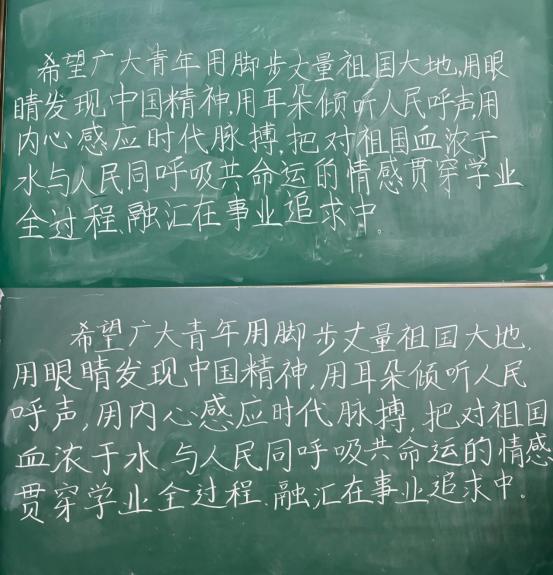 希望广大青年用脚步丈量祖国大地,用眼
睛发现中国精神,用耳朵倾听人民呼声,用
内心感应时代脉搏,把对祖国血浓于
水与人民同呼吸共命运的情感贯穿学业
全过程、融汇在事业追求中。
希望广大青年用脚步丈量祖国大地,
用眼睛发现中国精神,用耳朵倾听人民
呼声,用内心感应时代脉搏,把对祖国
血浓于水、与人民同呼吸共命运的情感
贯穿学业全过程、融汇在事业追求中。